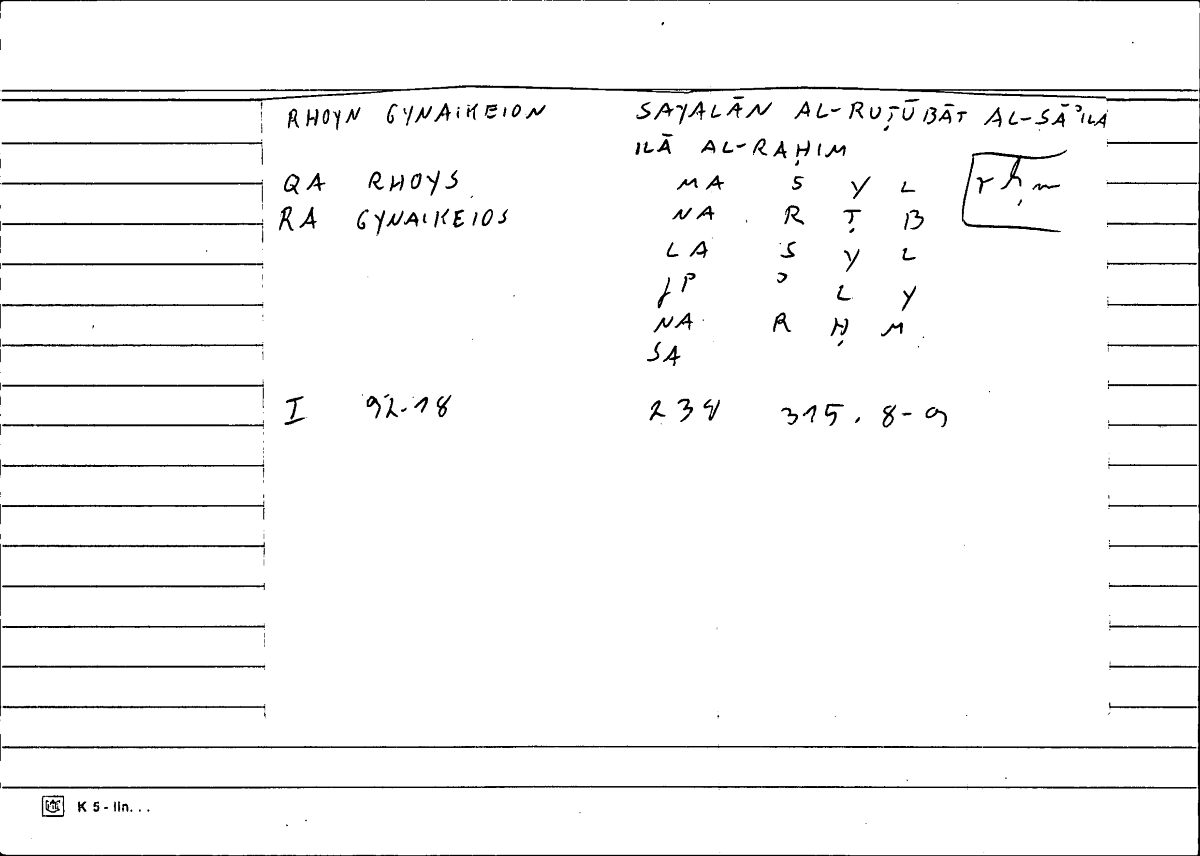 RHOYN GYNAIKEION SAYALĀN AL-RUṬŪBĀT AL-SĀʾILA
ILĀ AL-RAḤIM
QA RHOYS MA S Y L rḥm
RA GYNAIKEIOS NA R Ṭ B
LA S Y L
JP ʾ L Y
NA R Ḥ M
SA
I 92-18 238 315.8-9
K 5 - lin...